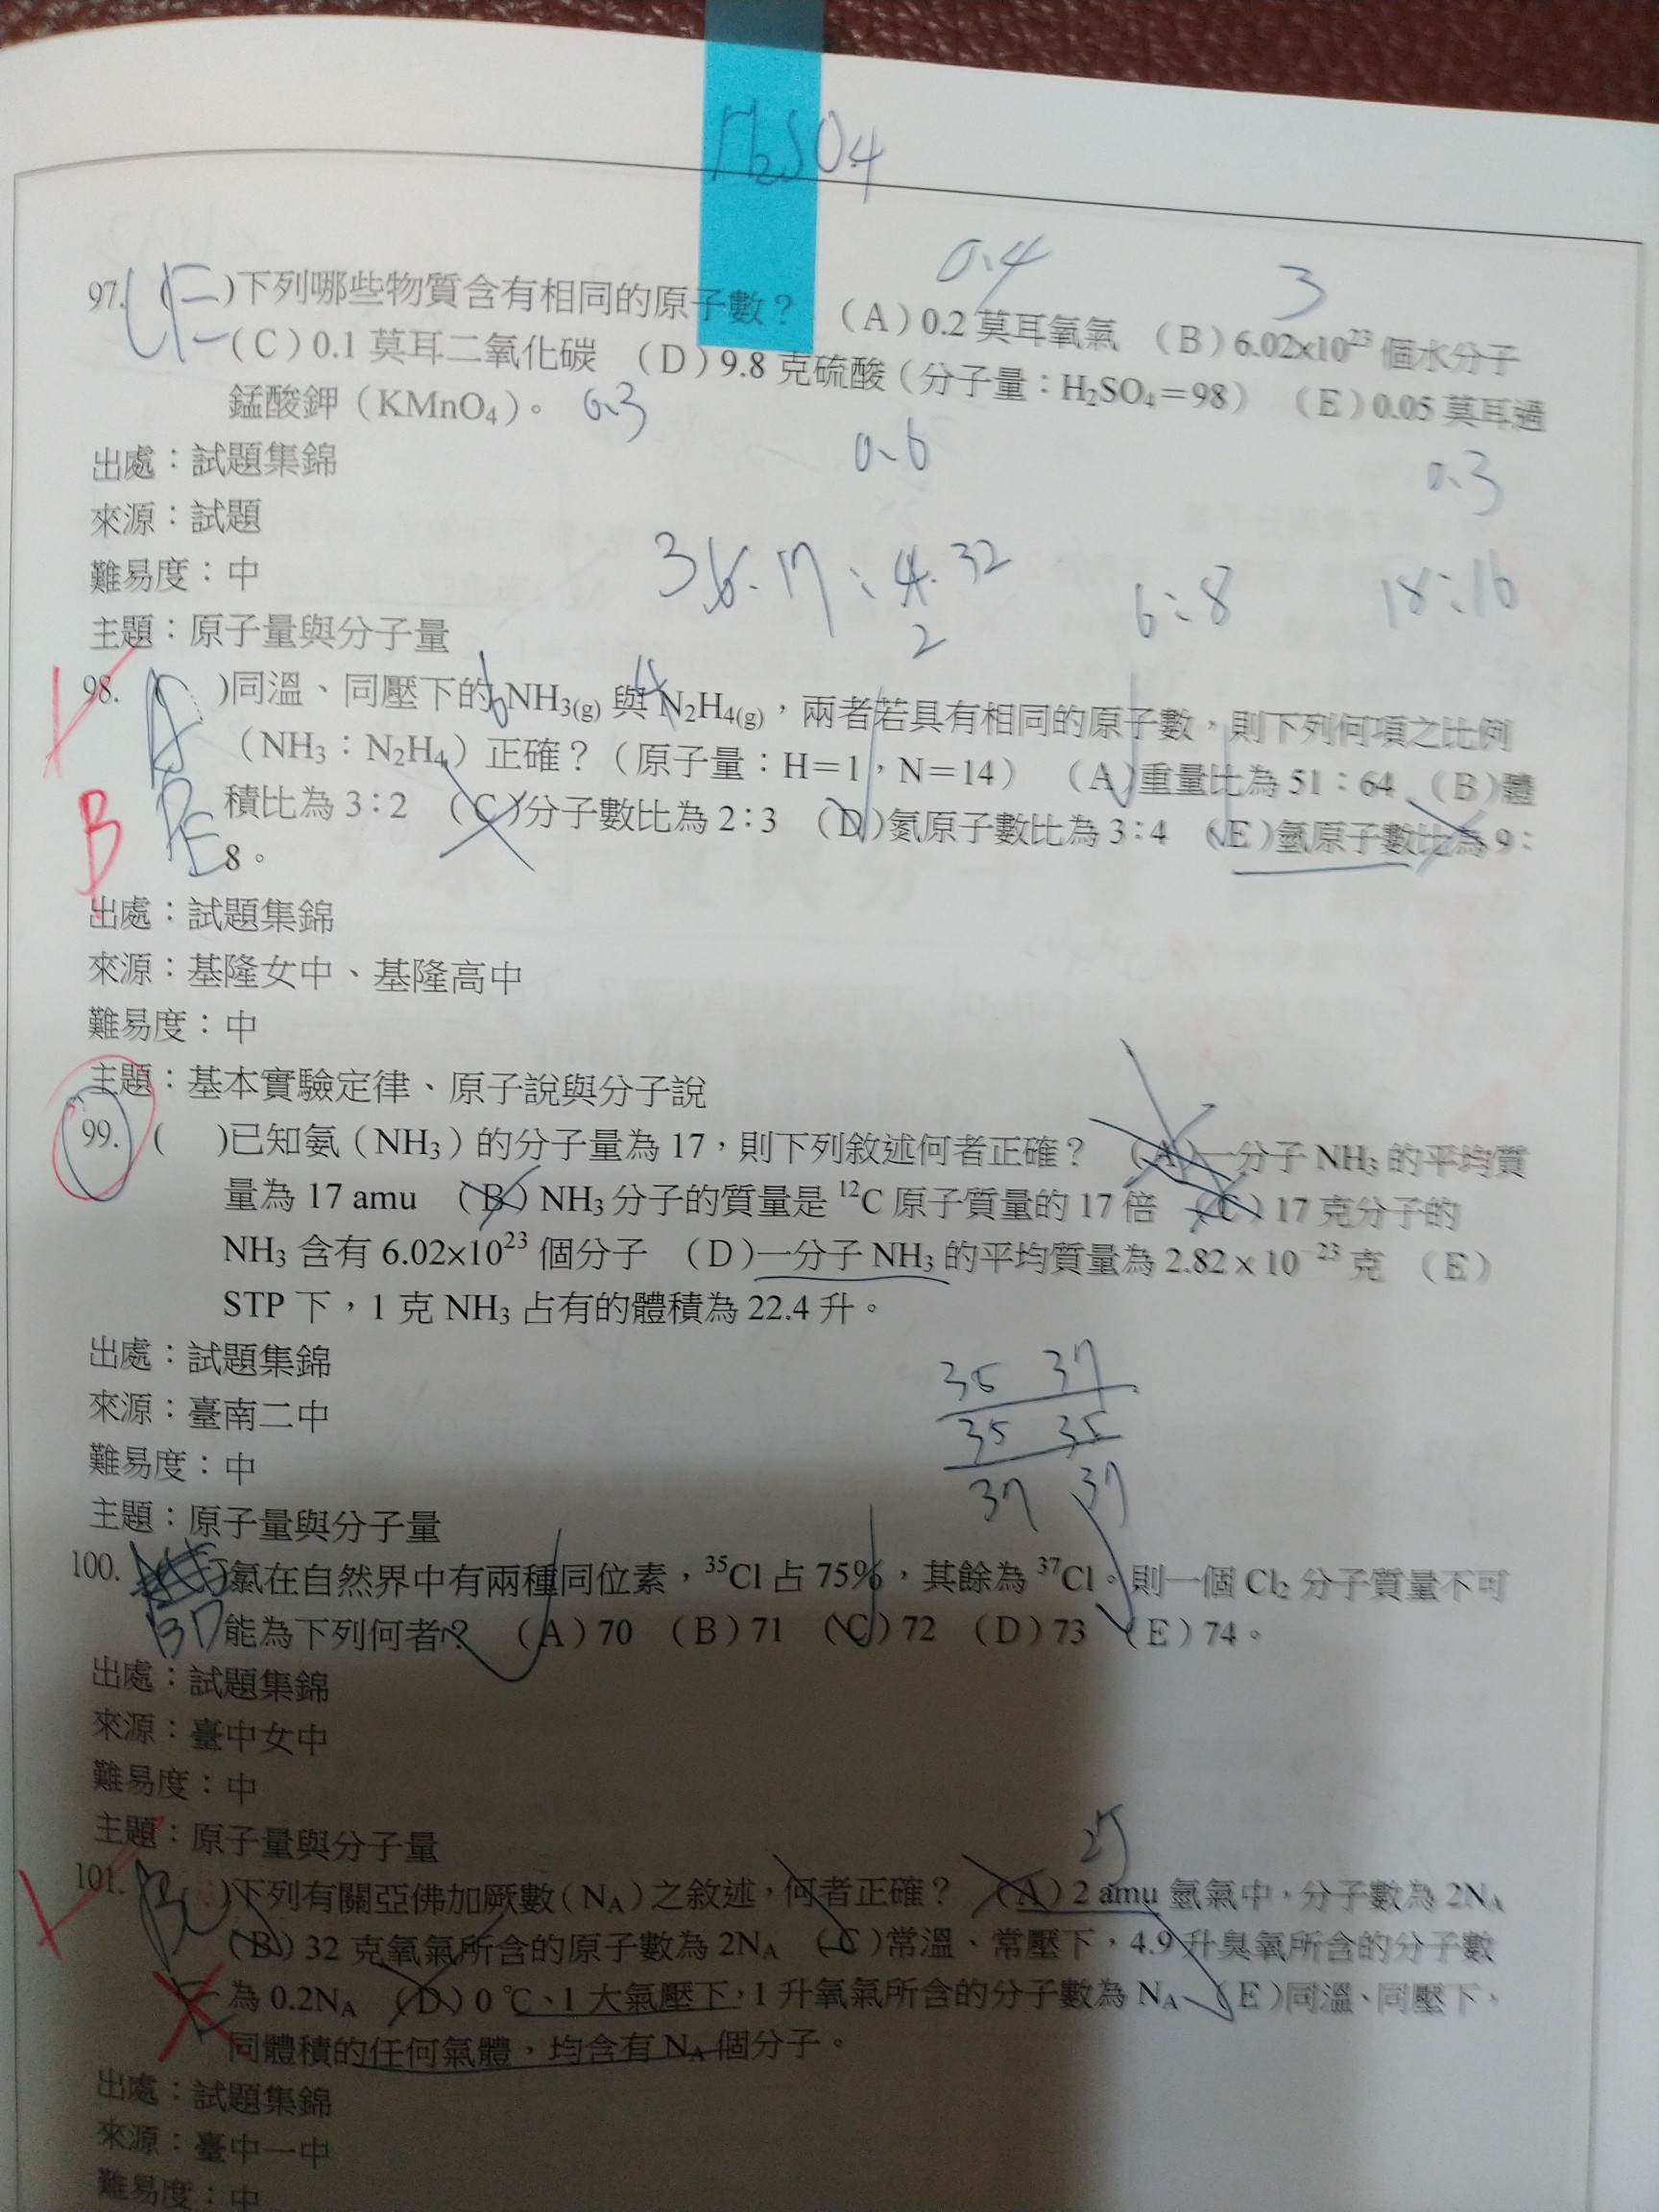 H₂SO₄
0.4
3
97. (CE)下列哪些物質含有相同的原子數？ (A)0.2 莫耳氧氣 (B)6.02×10²³ 個水分子
(C)0.1 莫耳二氧化碳 (D)9.8 克硫酸(分子量：H₂SO₄＝98) (E)0.05 莫耳過
錳酸鉀(KMnO₄)。 0.3
0.6
0.3
出處：試題集錦
來源：試題
難易度：中
主題：原子量與分子量
36.17：4.32
2
6：8
18：16
6
4
98. ( )同溫、同壓下的 NH₃(g) 與 N₂H₄(g)，兩者若具有相同的原子數，則下列何項之比例
A
(NH₃：N₂H₄)正確？(原子量：H＝1，N＝14) (A)重量比為 51：64 (B)體
B
D
積比為 3：2 (C)分子數比為 2：3 (D)氮原子數比為 3：4 (E)氫原子數比為 9：
E
8。
出處：試題集錦
來源：基隆女中、基隆高中
難易度：中
主題：基本實驗定律、原子說與分子說
99. ( )已知氨(NH₃)的分子量為 17，則下列敘述何者正確？ (A)一分子 NH₃ 的平均質
量為 17 amu (B)NH₃ 分子的質量是 ¹²C 原子質量的 17 倍 (C)17 克分子的
NH₃ 含有 6.02×10²³ 個分子 (D)一分子 NH₃ 的平均質量為 2.82 x 10⁻²³ 克 (E)
STP 下，1 克 NH₃ 占有的體積為 22.4 升。
出處：試題集錦
來源：臺南二中
難易度：中
主題：原子量與分子量
35 37
35 35
37 37
100. )氯在自然界中有兩種同位素，³⁵Cl 占 75%，其餘為 ³⁷Cl。則一個 Cl₂ 分子質量不可
BD
能為下列何者？ (A)70 (B)71 (C)72 (D)73 (E)74。
出處：試題集錦
來源：臺中女中
難易度：中
主題：原子量與分子量
101. BC )下列有關亞佛加厥數(N_A)之敘述，何者正確？ (A)2 amu 氫氣中，分子數為 2N_A
(B)32 克氧氣所含的原子數為 2N_A (C)常溫、常壓下，4.9 升臭氧所含的分子數
為 0.2N_A (D)0 ℃、1 大氣壓下，1 升氧氣所含的分子數為 N_A (E)同溫、同壓下，
E
同體積的任何氣體，均含有 N_A 個分子。
出處：試題集錦
來源：臺中一中
難易度：中